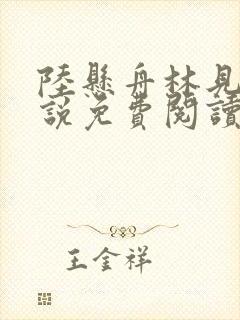 陸懸舟林見
說免費閱讀
王金祥